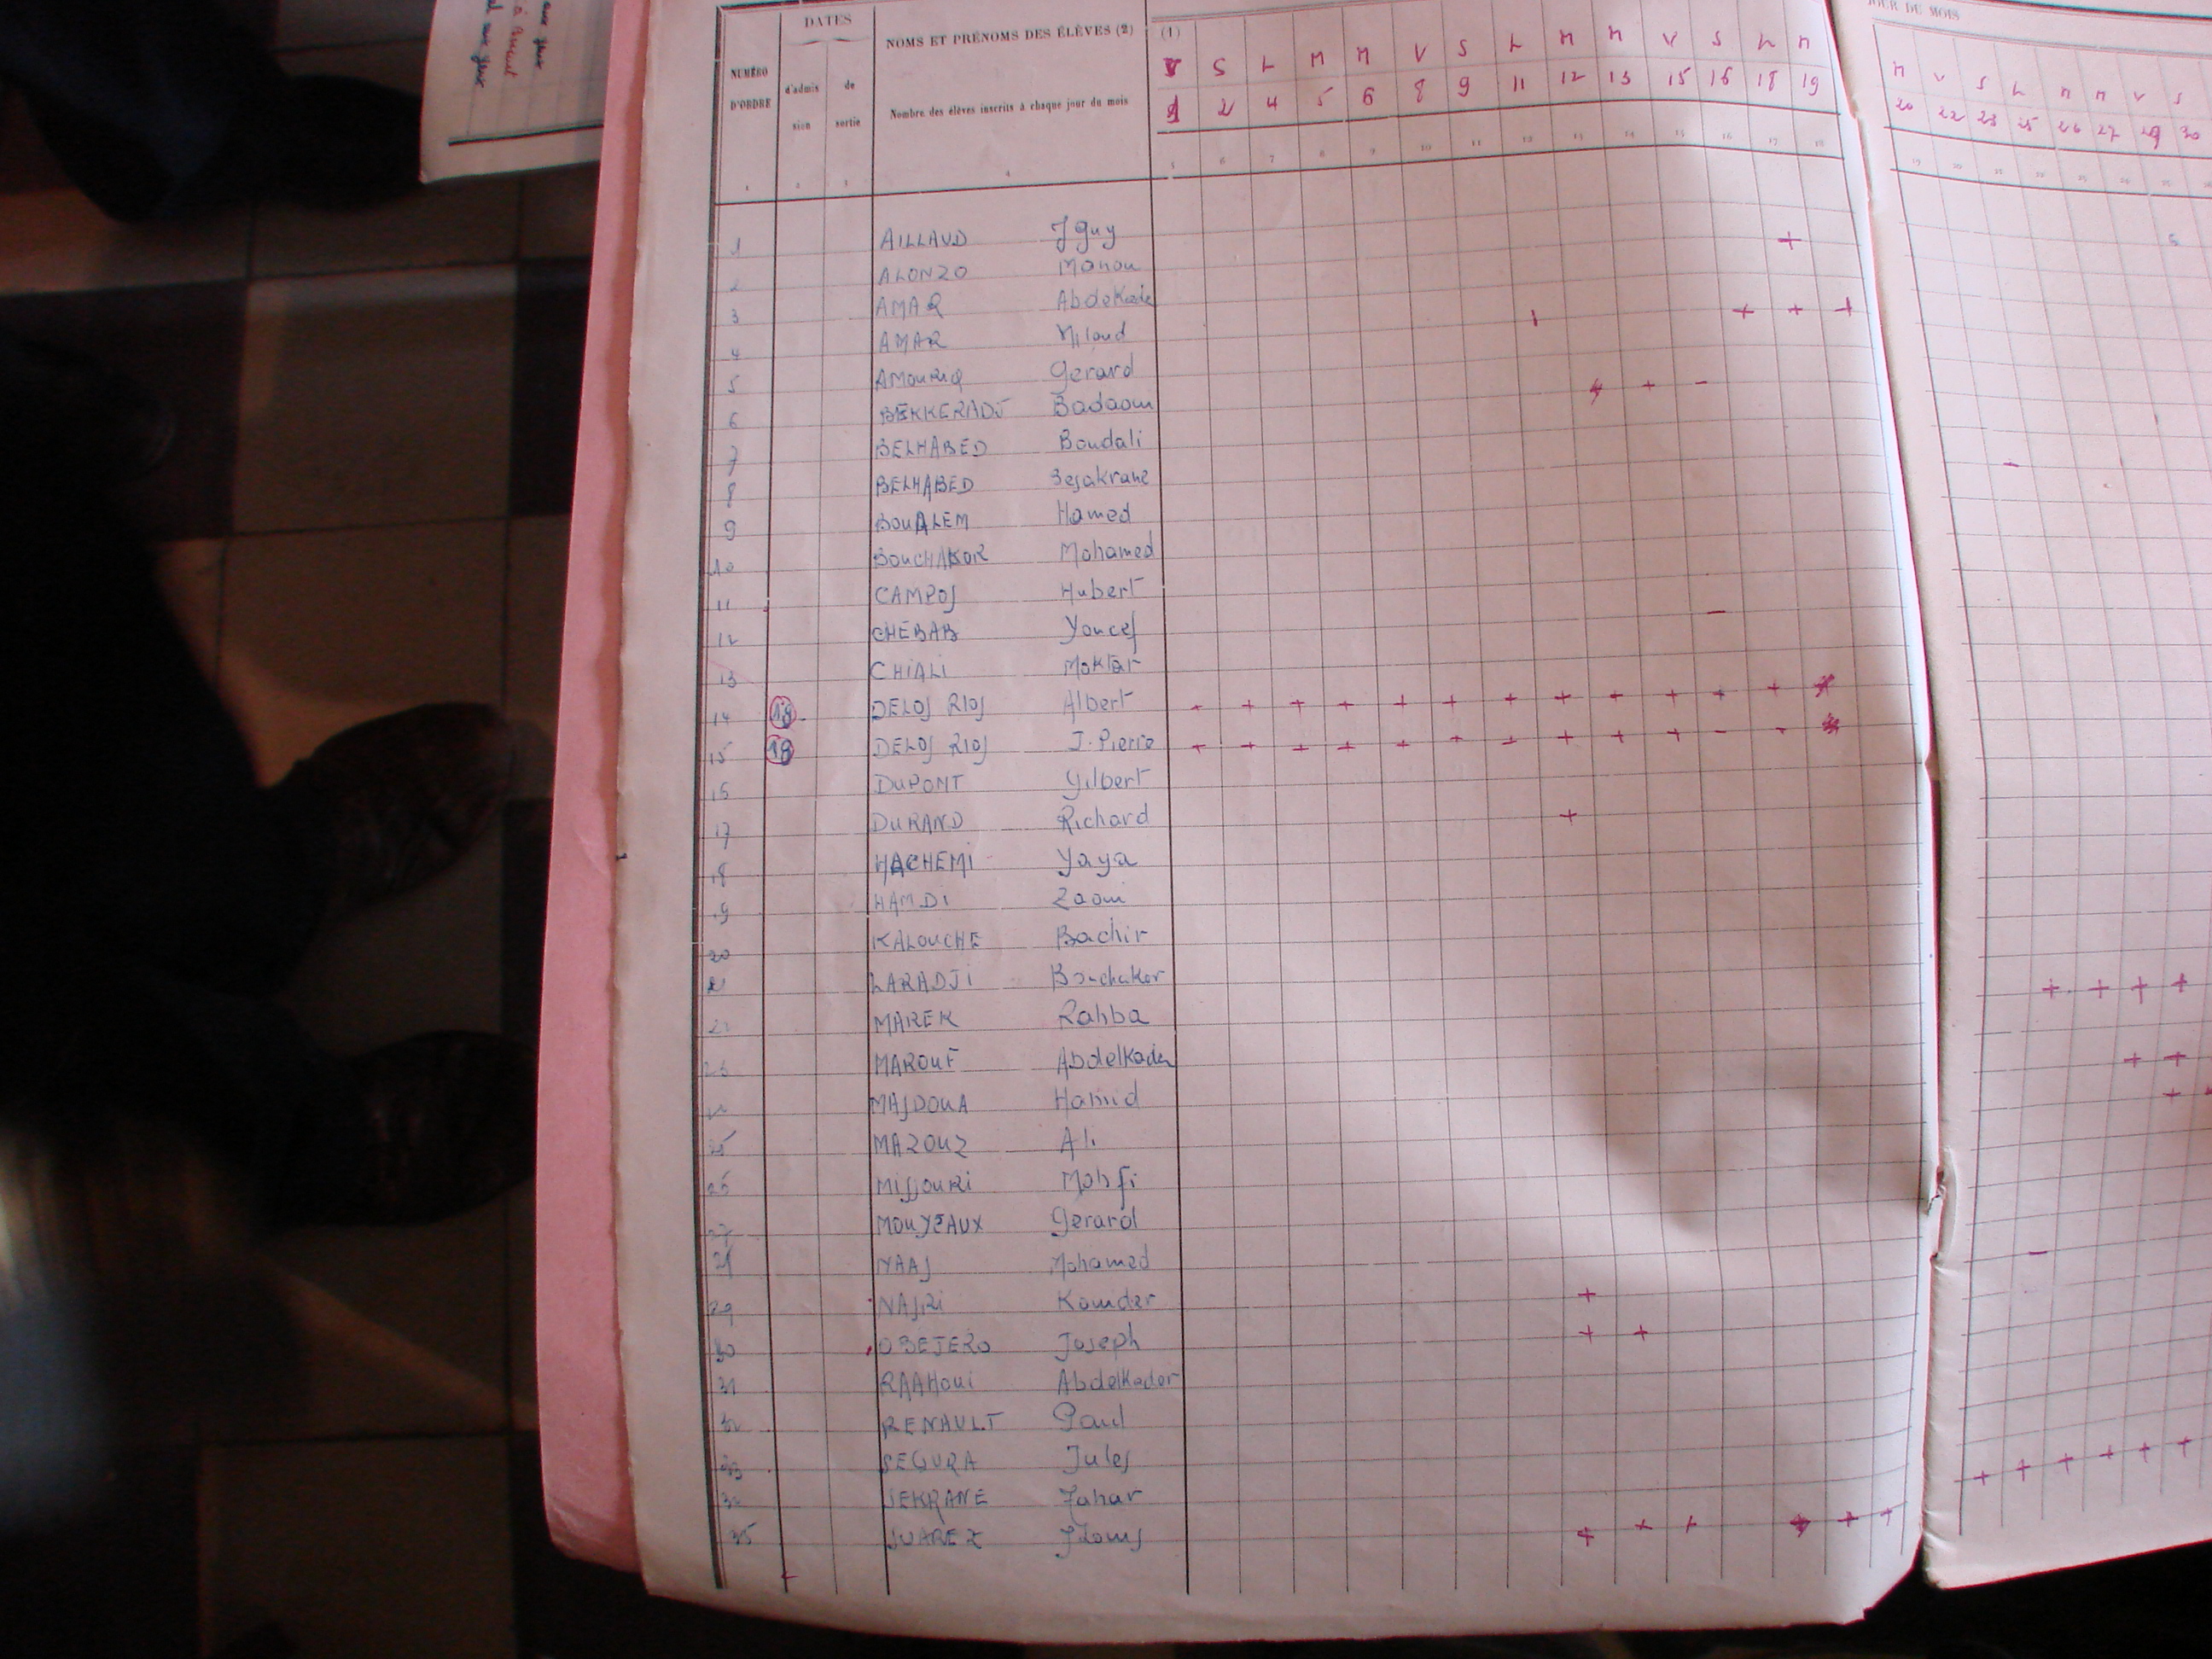 DATES
NUMÉRO D'ORDRE
d'admis sion
de sortie
NOMS ET PRÉNOMS DES ÉLÈVES (2)
Nombre des élèves inscrits à chaque jour du mois
(1)
JOUR DU MOIS
V S L M M V S L M M V S L M
1 2 4 5 6 8 9 11 12 13 15 16 18 19
M V S L M M V S
20 22 23 25 26 27 29 30
1 2 3 4 5 6 7 8 9 10 11 12 13 14 15 16 17 18
19 20 21 22 23 24 25
1 AILLAUD J Guy
2 ALONZO Manou
3 AMAR Abdelkade
4 AMAR Miloud
5 AMOURIQ Gerard
6 BEKKERADJ Badaoui
7 BELHABED Boudali
8 BELHABED
9 BOUALEM Hamed
10 BOUCHAKOR Mohamed
11 CAMPOS Hubert
12 CHEBAB Youcef
13 CHIALI Moktar
14 18 DELOS RIOS Albert
15 18 DELOS RIOS J. Pierre
16 DUPONT Gilbert
17 DURAND Richard
18 HACHEMI Yaya
19 HAMDI Zaoui
20 KALOUCHE Bachir
21 LARADJI Bouchakor
22 MAREK Rahba
23 MAROUF Abdelkader
24 MASDOUA Hamid
25 MAZOUZ Ali
26 MISSOURI
27 MOUYEAUX Gerard
28 NAAS Mohamed
29 NASRI Kouider
30 OBEJERO Joseph
31 RAAHOUI Abdelkader
32 RENAULT Paul
33 SEGURA Jules
34 SEKRANE Tahar
35 SUAREZ J Louis